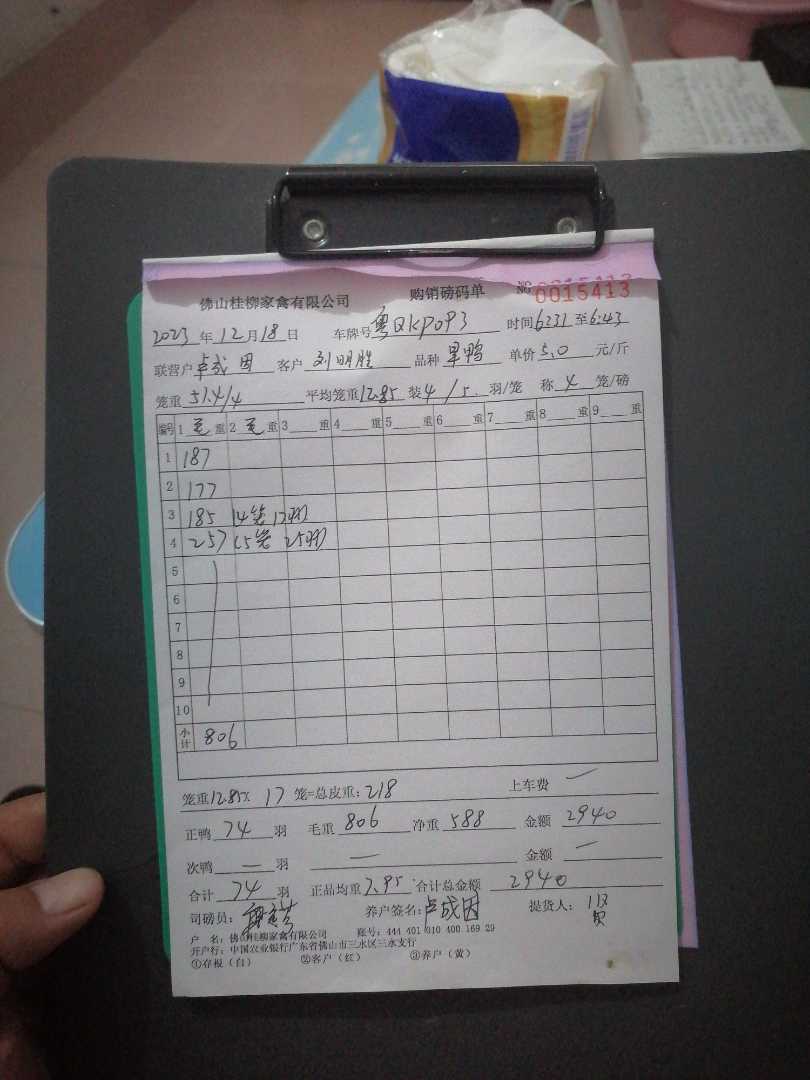 佛山桂柳家禽有限公司 购销磅码单 № 0015413
2023 年 12 月 18 日 车牌号 粤QKP0P3 时间 6:31 至 6:43
联营户 卢成因 客户 刘明胜 品种 单价 5.0 元/斤
笼重 51.4/4 平均笼重 12.85 装 4/5 羽/笼 称 4 笼/磅
编号 1 毛 重 2 毛 重 3 重 4 重 5 重 6 重 7 重 8 重 9 重
1 187
2 177
3 185 14笼 17羽
4 257 15笼 25羽
5
6
7
8
9
10
小计 806
笼重 12.85 × 17 笼=总皮重: 218 上车费 —
正鸭 74 羽 毛重 806 净重 588 金额 2940
次鸭 — 羽 — 金额 —
合计 74 羽 正品均重 7.95 合计总金额 2940
司磅员: 养户签名: 卢成因 提货人:
户 名: 佛山桂柳家禽有限公司 账号: 444 401 010 400 169 29
开户行: 中国农业银行广东省佛山市三水区三水支行
①存根（白） ②客户（红） ③养户（黄）